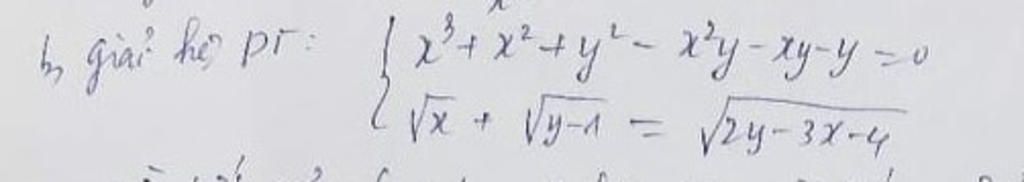 b, giải hệ PT: { x³ + x² + y² - x²y - xy - y = 0
√x + √(y-1) = √(2y-3x-4)